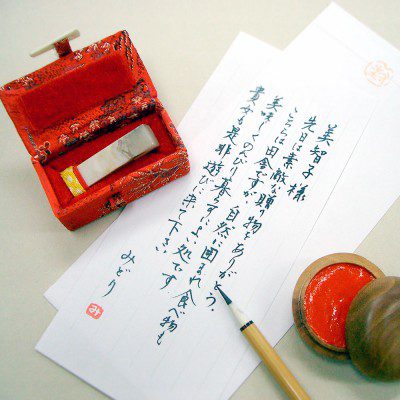 美智子様
先日は素敵な贈り物をありがとう。
こちらは田舎ですが、自然に囲まれ食べ物も
美味しくのんびり暮らすによい処です
貴女も是非遊びに来て下さい
みどり
み